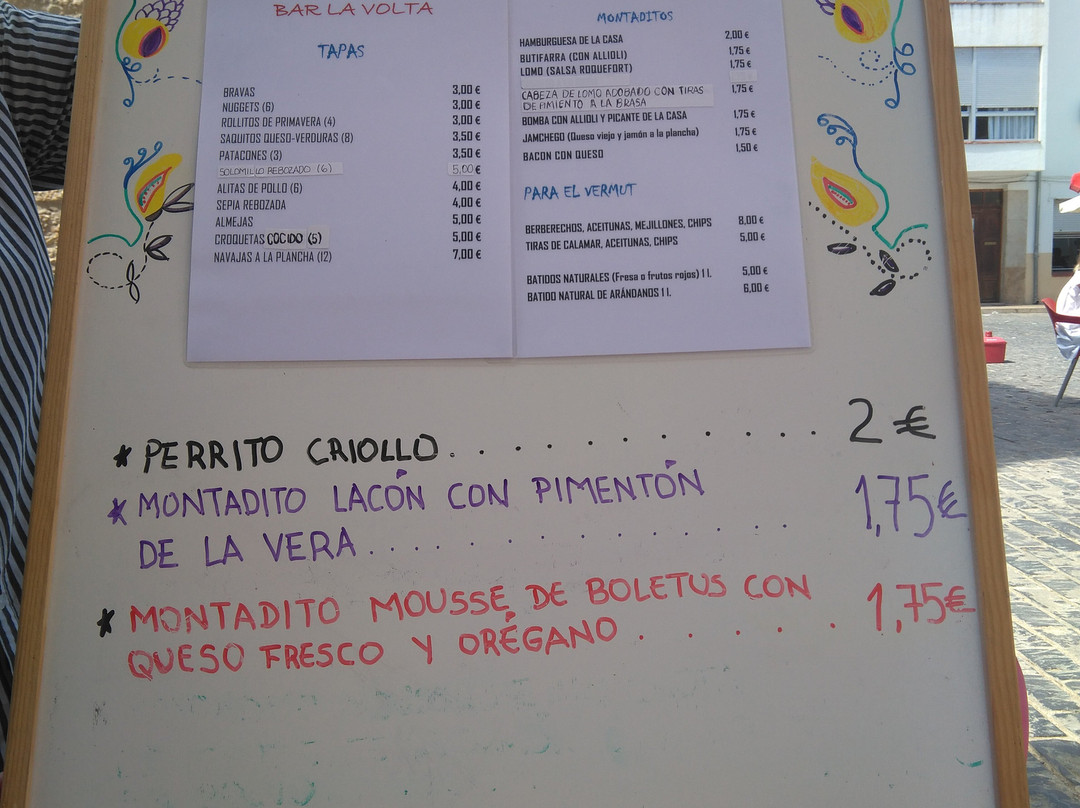 BAR LA VOLTA
TAPAS
BRAVAS 3,00 €
NUGGETS (6) 3,00 €
ROLLITOS DE PRIMAVERA (4) 3,00 €
SAQUITOS QUESO-VERDURAS (8) 3,50 €
PATACONES (3) 3,50 €
SOLOMILLO REBOZADO (6) 5,00 €
ALITAS DE POLLO (6) 4,00 €
SEPIA REBOZADA 4,00 €
ALMEJAS 5,00 €
CROQUETAS COCIDO (5) 5,00 €
NAVAJAS A LA PLANCHA (12) 7,00 €
MONTADITOS
HAMBURGUESA DE LA CASA 2,00 €
BUTIFARRA (CON ALLIOLI) 1,75 €
LOMO (SALSA ROQUEFORT) 1,75 €
CABEZA DE LOMO ADOBADO CON TIRAS 1,75 €
DE PIMIENTO A LA BRASA
BOMBA CON ALLIOLI Y PICANTE DE LA CASA 1,75 €
JAMCHEGO (Queso viejo y jamón a la plancha) 1,75 €
BACON CON QUESO 1,50 €
PARA EL VERMUT
BERBERECHOS, ACEITUNAS, MEJILLONES, CHIPS 8,00 €
TIRAS DE CALAMAR, ACEITUNAS, CHIPS 5,00 €
BATIDOS NATURALES (Fresa o frutos rojos) 1 l. 5,00 €
BATIDO NATURAL DE ARÁNDANOS 1 l. 6,00 €
* PERRITO CRIOLLO. . . . . . . . . . . 2 €
* MONTADITO LACÓN CON PIMENTÓN 1,75€
DE LA VERA . . . . . . . . . . . . .
* MONTADITO MOUSSE DE BOLETUS CON 1,75€
QUESO FRESCO Y ORÉGANO . . . . . .